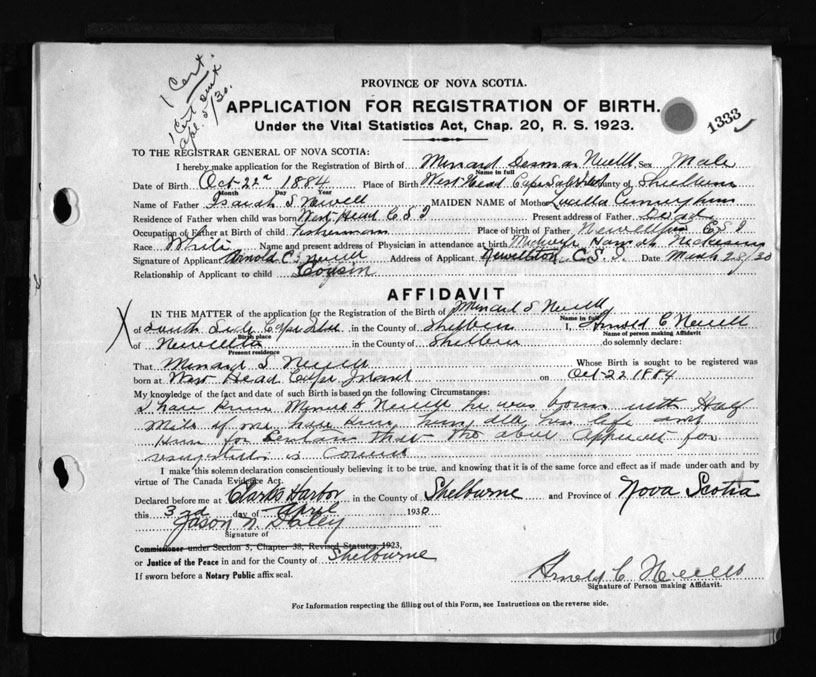 1 Cert.
1 Cert sent
Apl. 5/30.
1333
PROVINCE OF NOVA SCOTIA.
APPLICATION FOR REGISTRATION OF BIRTH.
Under the Vital Statistics Act, Chap. 20, R. S. 1923.
TO THE REGISTRAR GENERAL OF NOVA SCOTIA:
I hereby make application for the Registration of Birth of Menard Newell Sex Male
Name in full
Date of Birth Oct 22 1884 Place of Birth West Head Cape County of Shelburne
Month Day Year
Name of Father Isaiah S Newell MAIDEN NAME of Mother Cunningham
Residence of Father when child was born West Head C S I Present address of Father Dead
Occupation of Father at Birth of child Fisherman Place of birth of Father Newellton C S I
Race White Name and present address of Physician in attendance at birth Midwife Hannah
Signature of Applicant Arnold C Newell Address of Applicant Newellton C. S. I. Date March 28/30
Relationship of Applicant to child Cousin
AFFIDAVIT
IN THE MATTER of the application for the Registration of the Birth of Menard S Newell
Name in full
of South Side Cape Island in the County of Shelburne I, Arnold C Newell
Birth place Name of person making Affidavit
of Newellton in the County of Shelburne do solemnly declare:
Present residence
That Menard S Newell Whose Birth is sought to be registered was
born at West Head Cape Island on Oct 22 1884
My knowledge of the fact and date of such Birth is based on the following Circumstances:
I have Menard S Newell he was born with Half
Mile of me have his life and
for that the above for
is Correct
I make this solemn declaration conscientiously believing it to be true, and knowing that it is of the same force and effect as if made under oath and by
virtue of The Canada Evidence Act.
Declared before me at Clarks Harbor in the County of Shelburne and Province of Nova Scotia
this 3rd day of April 1930
Jason N
Signature of
Commissioner under Section 5, Chapter 38, Revised Statutes, 1923,
or Justice of the Peace in and for the County of Shelburne
If sworn before a Notary Public affix seal.
Arnold C Newell
Signature of Person making Affidavit.
For Information respecting the filling out of this Form, see Instructions on the reverse side.